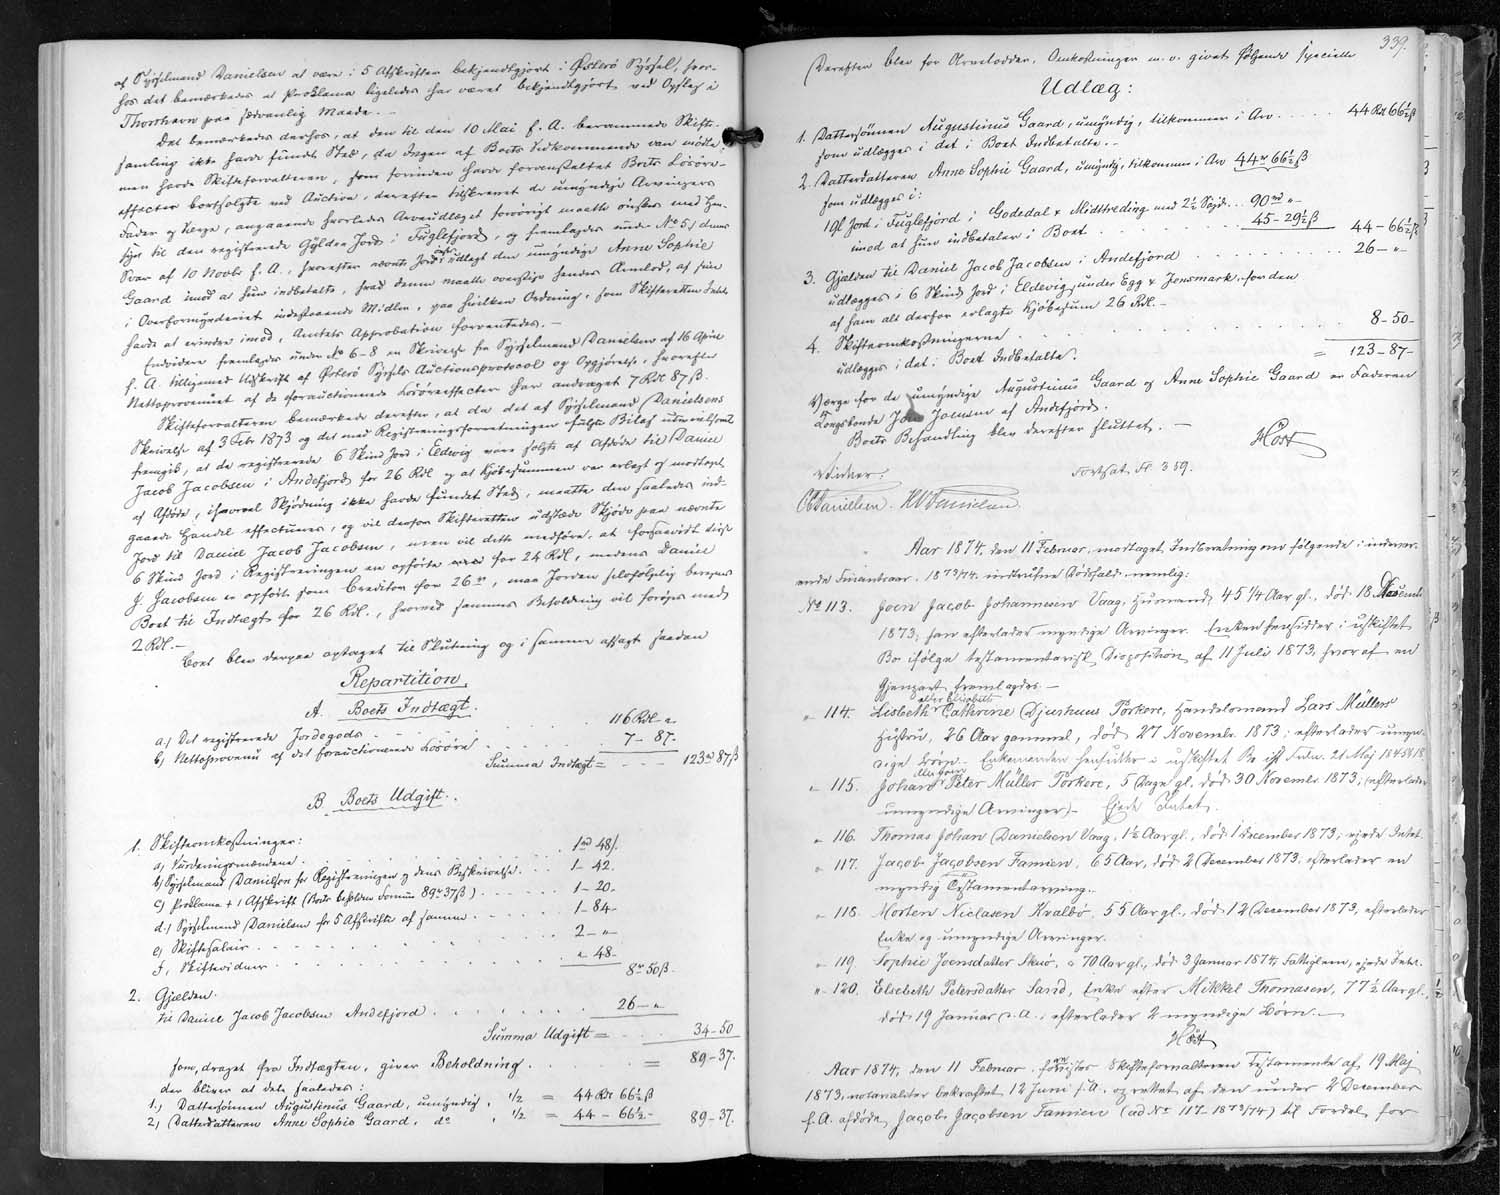 af Sysselmand Danielsen at være i 5 Afskrifter bekjendtgjort i Østerø Syssel, hvor-
hos det bemærkedes at Proklama ligeledes har været bekjendtgjort ved Opslag i
Thorshavn paa sædvanlig Maade. —
Det bemærkedes derhos, at den til den 10 Mai f. A. berammede Skifte-
samling ikke havde fundet Sted, da Ingen af Boets Vedkommende var mødte,
men havde Skifteforvalteren, som forinden havde foranstaltet Boets Løsøre-
effecter bortsolgte ved Auction, derefter tilskrevet de umyndige Arvingers
Fader og Værge, angaaende hvorledes Arveudlæget forøvrigt maatte ønskes med Hen-
syn til den registrerede Gylden Jord i Fuglefjord, og fremlagdes under No 5) dennes
Svar af 10 Novbr f. A., hvorefter nævnte Jord ønskes udlagt den umyndige Anne Sophie
Gaard imod at hun indbetalte, hvad denne maatte overstige hendes Arvelod, af sine
i Overformynderiet indestaaende Midler, paa hvilken Ordning, som Skifteretten Intet
havde at erindre imod, Amtets Approbation forventedes. —
Endvidere fremlagdes under No 6-8 en Skrivelse fra Sysselmand Danielsen af 16 April
f. A. tilligemed Udskrift af Østerø Syssels Auctionsprotocol og Opgjørelse, hvorefter
Nettoprovenuet af de forauctionerede Løsøreeffecter har andraget 7 Rdl 87 ß.
Skifteforvalteren bemærkede derefter, at da det af Sysselmand Danielsens
Skrivelse af 3 Febr 1873 og det med Registreringsforretningen fulgte Bilag
fremgik, at de registrerede 6 Skind Jord i Eldevig vare solgte af Afdøde til Daniel
Jacob Jacobsen i Andefjord for 26 Rdl og at Kjøbesummen var erlagt og modtaget
af Afdøde, hvorvel Skjødning ikke havde fundet Sted, maatte den saaledes ind-
gaaede Handel effectueres, og vil derfor Skifteretten udstæde Skjøde paa nævnte
Jord til Daniel Jacob Jacobsen, men vil dette medføre, at forsaavidt disse
6 Skind Jord i Registreringen er opførte for 24 Rdl, medens Daniel
J. Jacobsen er opført som Creditor for 26 rd, maa Jorden selvfølgelig beregnes
Boet til Indtægt for 26 Rdl., hvorved sammes Beholdning vil forøges med
2 Rdl. —
Boet blev derpaa optaget til Slutning og i samme affagt saadan
Repartition.
A. Boets Indtægt.
a) Det registrerede Jordegods . . . 116 Rdl - "
b) Nettoprovenu af det forauctionerede Løsøre . . . 7 - 87.
Summa Indtægt = . . . 123 rd 87 ß
B Boets Udgift.
1. Skifteomkostninger:
a) Vurderingsmændene . . . 1 rd 48 ß.
b) Sysselmand Danielsen for Registreringen og dens Beskrivelse . . . 1 - 42.
c) Proklama + 1 Afskrift (Boets beholdne Formue 89 rd 37 ß) . . . 1 - 20 -
d.) Sysselmand Danielsen for 5 Afskrifter af samme . . . 1 - 84 -
e) Skiftesalair . . . 2 - "
f) Skiftevidner . . . " 48 -
8 rd 50 ß.
2. Gjælden.
til Daniel Jacob Jacobsen Andefjord . . . 26 - "
Summa Udgift = . . . 34 - 50
som, draget fra Indtægten, giver Beholdning . . . = 89 - 37.
der bliver at dele saaledes:
1.) Dattersønnen Augustinus Gaard, umyndig, 1/2 = 44 Rdl 66 1/2 ß
2) Datterdatteren Anne Sophie Gaard, do , 1/2 = 44 - 66 1/2 - 89 - 37.
339.
Derefter blev for Arvelodder, Omkostninger m. v. givet følgende specielle
Udlæg:
1. Dattersønnen Augustinus Gaard, umyndig, tilkommer i Arv . . . 44 Rdl 66 1/2 ß
som udlægges i det i Boet Indbetalte. -
2. Datterdatteren Anne Sophie Gaard, umyndig, tilkommer i Arv 44 rd 66 1/2 ß
som udlægges i:
1 Gl Jord i Fuglefjord i Godedal & Midttreding med 2 1/2 . . . 90 rd "
imod at hun indbetaler i Boet . . . 45 - 29 1/2 ß 44 - 66 1/2 ß
3. Gjælden til Daniel Jacob Jacobsen i Andefjord . . . 26 - "
udlægges i 6 Skind Jord i Eldevig, under Egg & Jensmark, for den
af ham alt derfor erlagte Kjøbesum 26 Rdl. —
4. Skifteomkostningerne . . . 8 - 50 -
udlægges i det i Boet Indbetalte. = 123 - 87 -
Værge for de umyndige Augustinus Gaard og Anne Sophie Gaard er Faderen
Kongsbonde Joen Joensen af Andefjord.
Boets Behandling blev derefter sluttet. —
Høst
Vidner: Fortsat Fl. 359.
Danielsen. Danielsen.
Aar 1874, den 11 Februar, modtaget Indberetning om følgende i indevæ-
rende Finantsaar 1873/74 indtrufne Dødsfald nemlig:
No 113. Joen Jacob Johannesen Vaag, Husmand, 45 1/4 Aar gl., død 18 Novembr
1873; han efterlader myndige Arvinger. Enken hensidder i uskiftet
Bo ifølge testamentarisk Disposition af 11 Juli 1873, hvoraf en
Gjenpart fremlagdes. —
" 114. Lisbeth eller Elisabeth Cathrine Djurhuus Tørkere, Handelsmand Lars Müllers
Hustru, 26 Aar gammel, død 27 November 1873; efterlader umyn-
dige Børn. Enkemanden hensidder i uskiftet Bo ifl Frdn. 21 Maj 1845 § 18.
" 115. Johan Peter Müller Tørkere, 5 Dage gl. død 30 Novembr 1873; (efterlader
umyndige Arvinger) - Ejede Intet.
" 116. Thomas Johan Danielsen Vaag, 1 1/2 Aar gl., død 1 December 1873; ejede Intet.
" 117. Jacob Jacobsen Famien, 65 Aar, død 2 December 1873, efterlader en
myndig Testamentarving.
" 118. Morten Niclasen Kvalbø, 55 Aar gl., død 12 December 1873, efterlader
Enke og umyndige Arvinger.
" 119. Sophie Joensdatter Skuø, 70 Aar gl., død 3 Januar 1874, Fattiglem, ejede Intet.
" 120. Elsebeth Petersdatter Sand, Enke efter Mikkel Thomasen, 77 1/2 Aar gl.,
død 19 Januar d. A.; efterlader 2 myndige Børn. —
Høst
Aar 1874, den 11 Februar, foreviste Skifteforvalteren Testamente af 19 Maj
1873, notarialiter bekræftet 12 Juni s. A. oprettet af den under 2 December
f. A. afdøde Jacob Jacobsen Famien (ad No 117 - 1873/74) til Fordel for